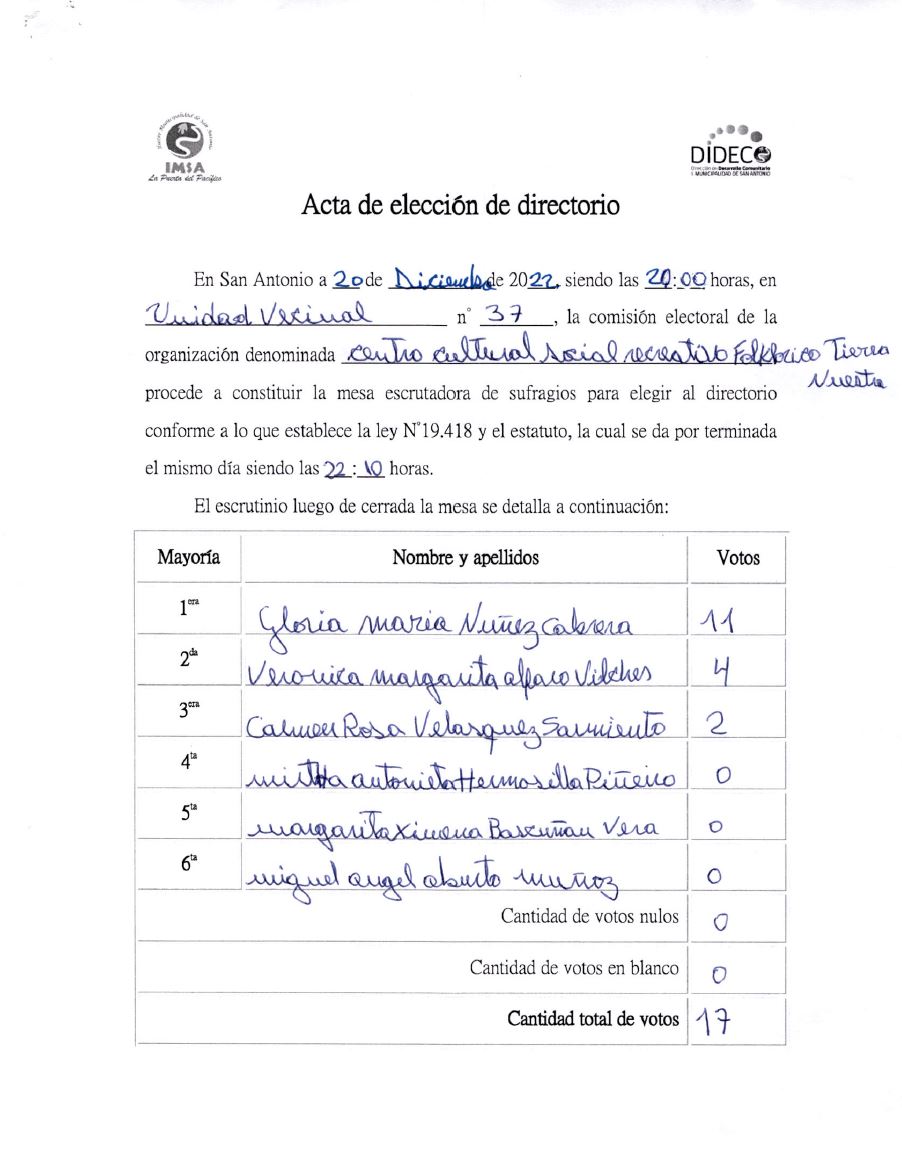 Ilustre Municipalidad de San Antonio
IMSA
La Puerta del Pacífico
DIDECO
Dirección de Desarrollo Comunitario
I. MUNICIPALIDAD DE SAN ANTONIO
Acta de elección de directorio
En San Antonio a 20 de Diciembre de 2022, siendo las 20:00 horas, en
Unidad Vecinal n° 37, la comisión electoral de la
organización denominada centro cultural social recreativo Folklorico Tierra
Nuestra
procede a constituir la mesa escrutadora de sufragios para elegir al directorio
conforme a lo que establece la ley N°19.418 y el estatuto, la cual se da por terminada
el mismo día siendo las 22:10 horas.
El escrutinio luego de cerrada la mesa se detalla a continuación:
Mayoría Nombre y apellidos Votos
1era Gloria maria Nuñez Cabrera 11
2da Veronica margarita alfaro Vilches 4
3era Carmen Rosa Velasquez Sarmiento 2
4ta mirtha antonieta Hermosilla Piñeiro 0
5ta margarita Ximena Bascuñan Vera 0
6ta miguel angel aburto muñoz 0
Cantidad de votos nulos 0
Cantidad de votos en blanco 0
Cantidad total de votos 17